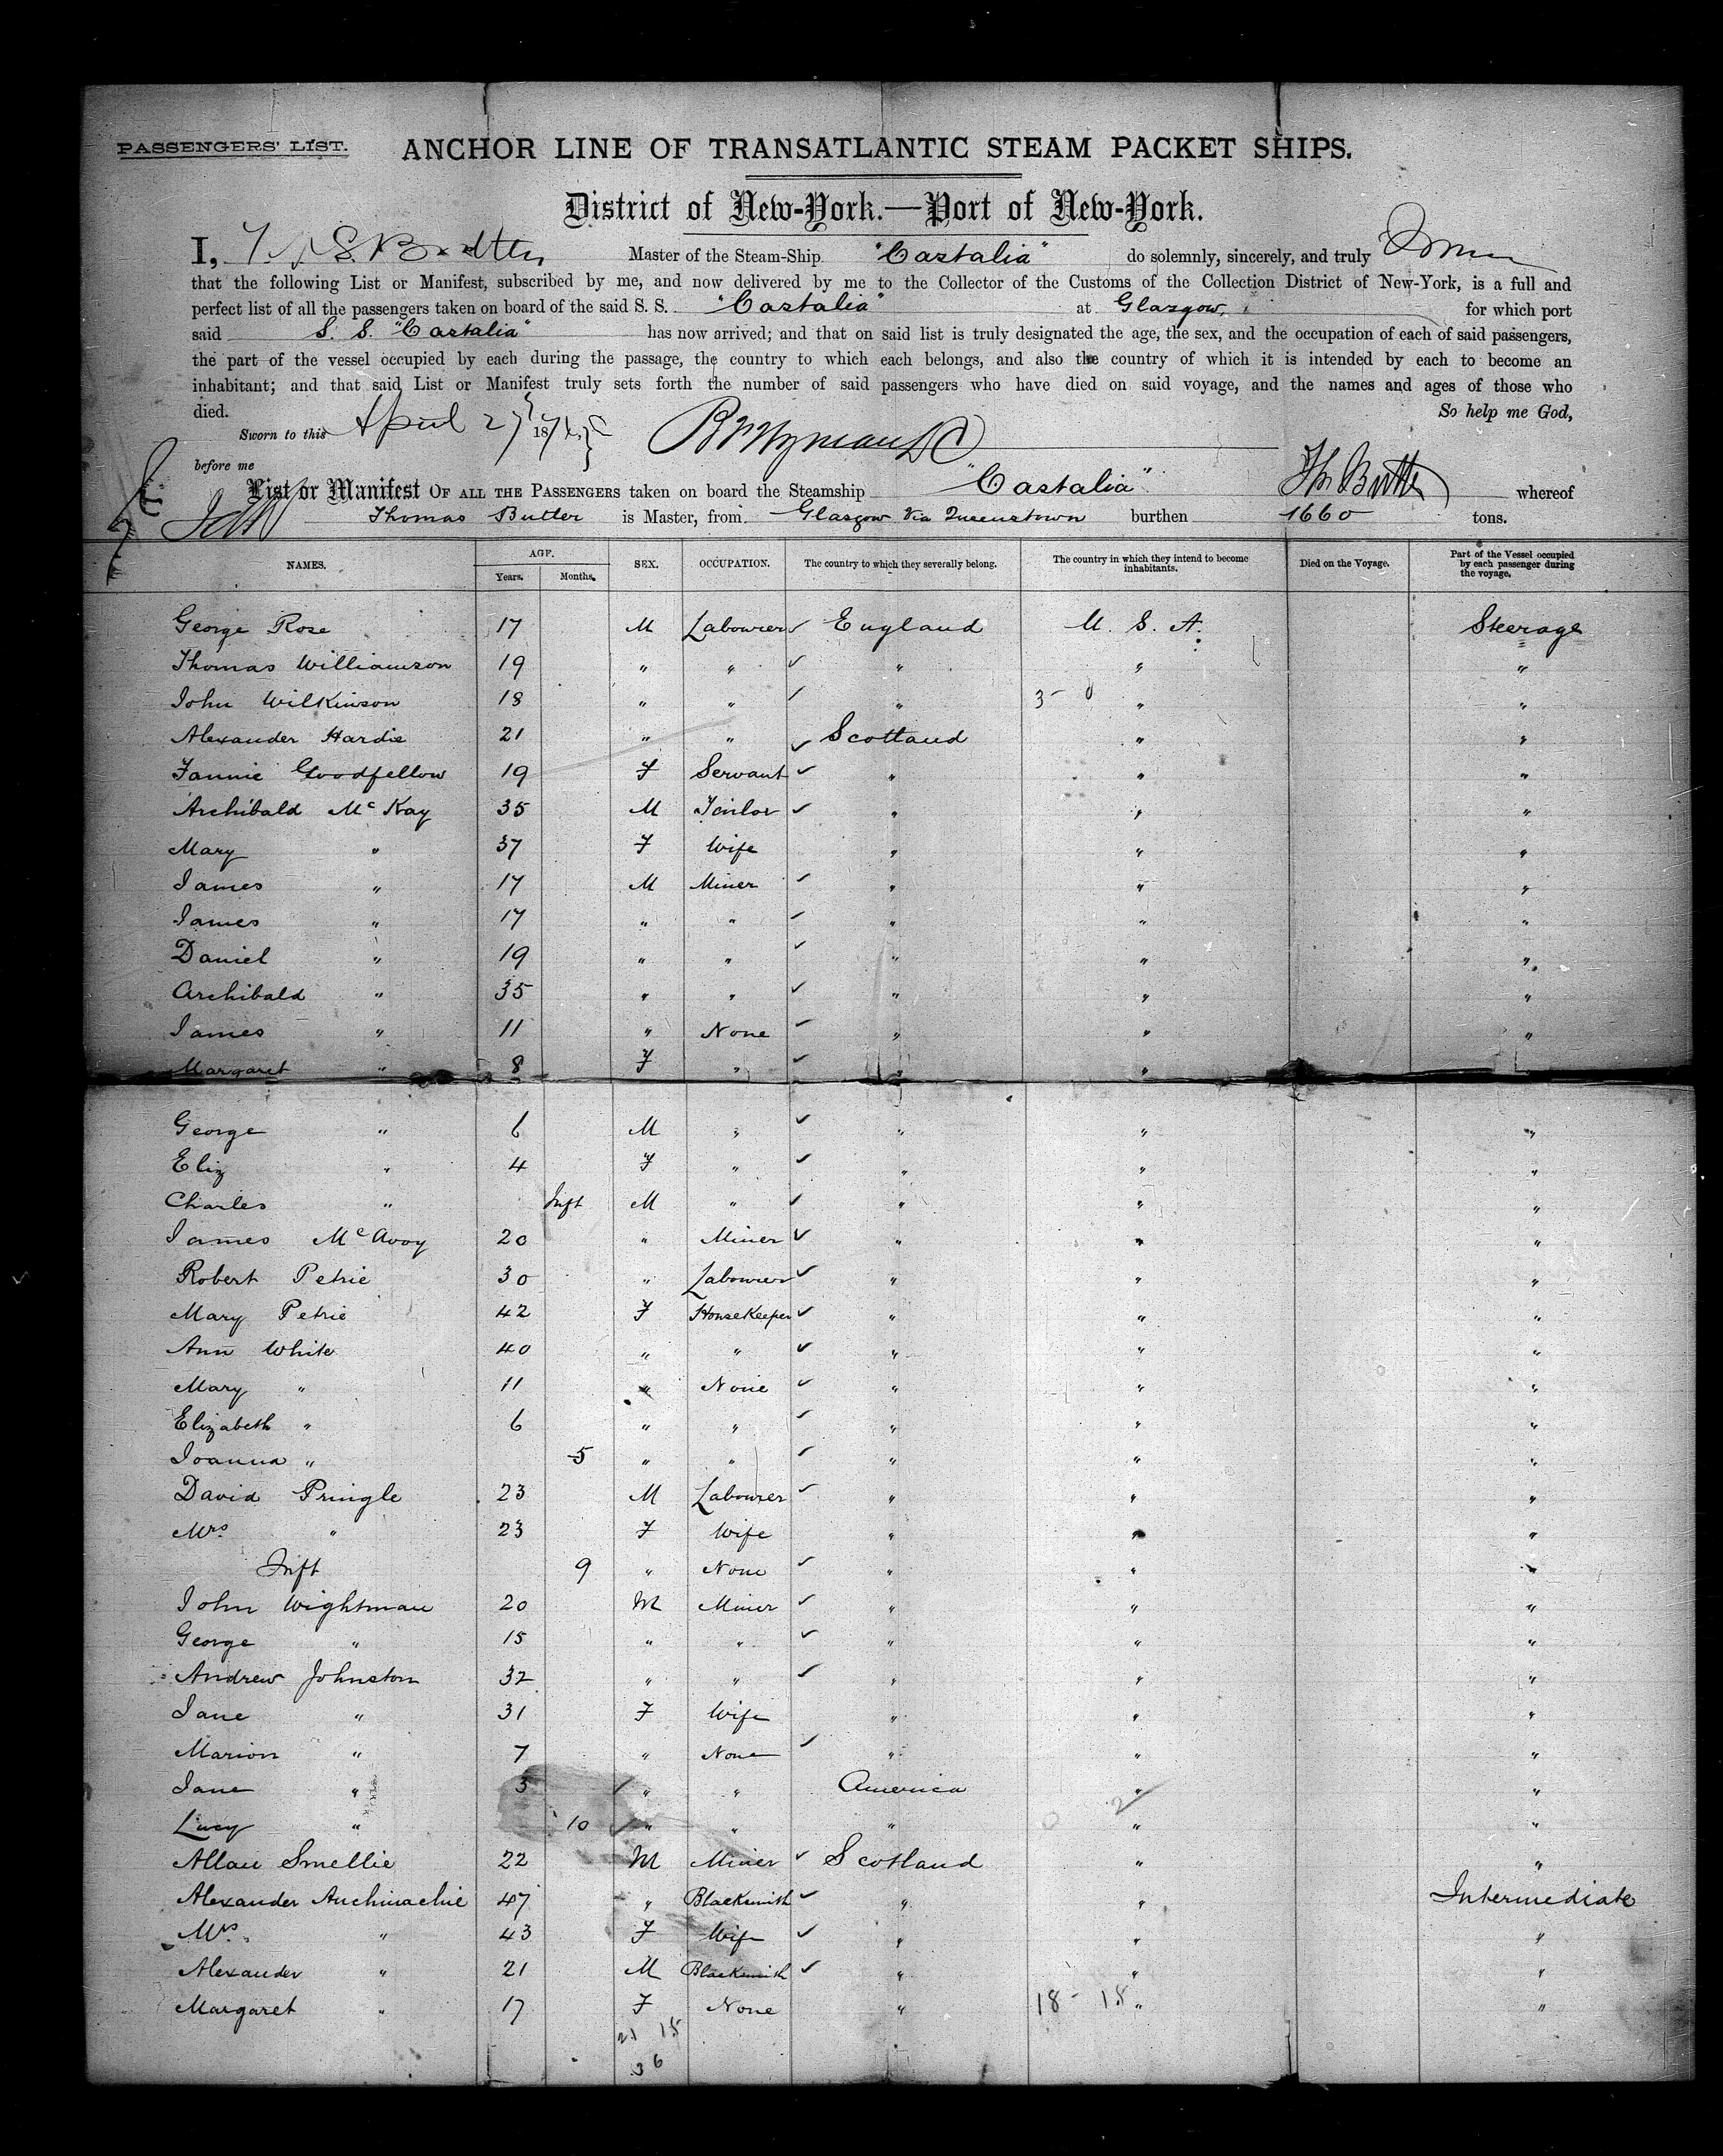 PASSENGERS' LIST. ANCHOR LINE OF TRANSATLANTIC STEAM PACKET SHIPS.
District of New-York.—Port of New-York.
I, Master of the Steam-Ship "Castalia" do solemnly, sincerely, and truly
that the following List or Manifest, subscribed by me, and now delivered by me to the Collector of the Customs of the Collection District of New-York, is a full and
perfect list of all the passengers taken on board of the said S. S. "Castalia" at Glasgow, for which port
said S. S. "Castalia" has now arrived; and that on said list is truly designated the age, the sex, and the occupation of each of said passengers,
the part of the vessel occupied by each during the passage, the country to which each belongs, and also the country of which it is intended by each to become an
inhabitant; and that said List or Manifest truly sets forth the number of said passengers who have died on said voyage, and the names and ages of those who
died. So help me God,
Sworn to this April 27 18
before me
List or Manifest OF ALL THE PASSENGERS taken on board the Steamship "Castalia" whereof
Thomas Butler is Master, from Glasgow via Queenstown burthen 1660 tons.
NAMES. AGE. Years. Months. SEX. OCCUPATION. The country to which they severally belong. The country in which they intend to become inhabitants. Died on the Voyage. Part of the Vessel occupied by each passenger during the voyage.
George Rose 17 M Labourer ✓ England U. S. A. Steerage
Thomas Williamson 19 " " ✓ " " "
John Wilkinson 18 " " ✓ " 3 - 0 " "
Alexander Hardie 21 " " ✓ Scotland " "
Fannie Goodfellow 19 F Servant ✓ " " "
Archibald McKay 35 M Tailor ✓ " " "
Mary " 37 F Wife " " "
James " 17 M Miner ✓ " " "
James " 17 " " ✓ " " "
Daniel " 19 " " ✓ " " "
Archibald " 35 " " ✓ " " "
James " 11 " None ✓ " " "
Margaret " 8 F " ✓ " " "
George " 6 M " ✓ " " "
Eliz " 4 F " ✓ " " "
Charles " Inft M " ✓ " " "
James McAvoy 20 " Miner ✓ " " "
Robert Petrie 30 " Labourer ✓ " " "
Mary Petrie 42 F HouseKeeper ✓ " " "
Ann White 40 " " ✓ " " "
Mary " 11 " None ✓ " " "
Elizabeth " 6 " " ✓ " " "
Joanna " 5 " " ✓ " " "
David Pringle 23 M Labourer ✓ " " "
Mrs " 23 F Wife " " "
Inft 9 " None ✓ " " "
John Wightman 20 M Miner ✓ " " "
George " 15 " " ✓ " " "
Andrew Johnston 32 " " ✓ " " "
Jane " 31 F Wife " " "
Marion " 7 " None ✓ " " "
Jane " 3 ✓ " " America " "
Lucy " 10 ✓ " " " 0 2 " "
Allan Smellie 22 M Miner ✓ Scotland " "
Alexander Auchinachie 47 " Blacksmith ✓ " " Intermediate
Mrs. " 43 F Wife ✓ " " "
Alexander " 21 M Blacksmith ✓ " " "
Margaret " 17 F None " 18 - 18 " "
21 15
36